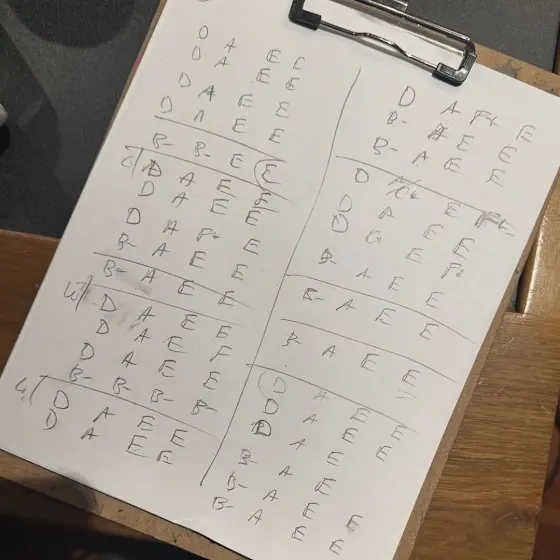 D A E E
D A E E
D A E E
D A E E
B- B- E E
D A E E
D A E E
D A F# E
B- A E E
B- A E E
D A E E
D A E F
D A E E
B- B- B- B-
D A E E
D A E E
D A F# E
B- A E E
B- A E E
D A/C# E
D A E E
D E F#
B- A E E
B- A E E
B- A E E
D A E E
D A E E
D A E
B- A E E
B- A E E
B- A E E